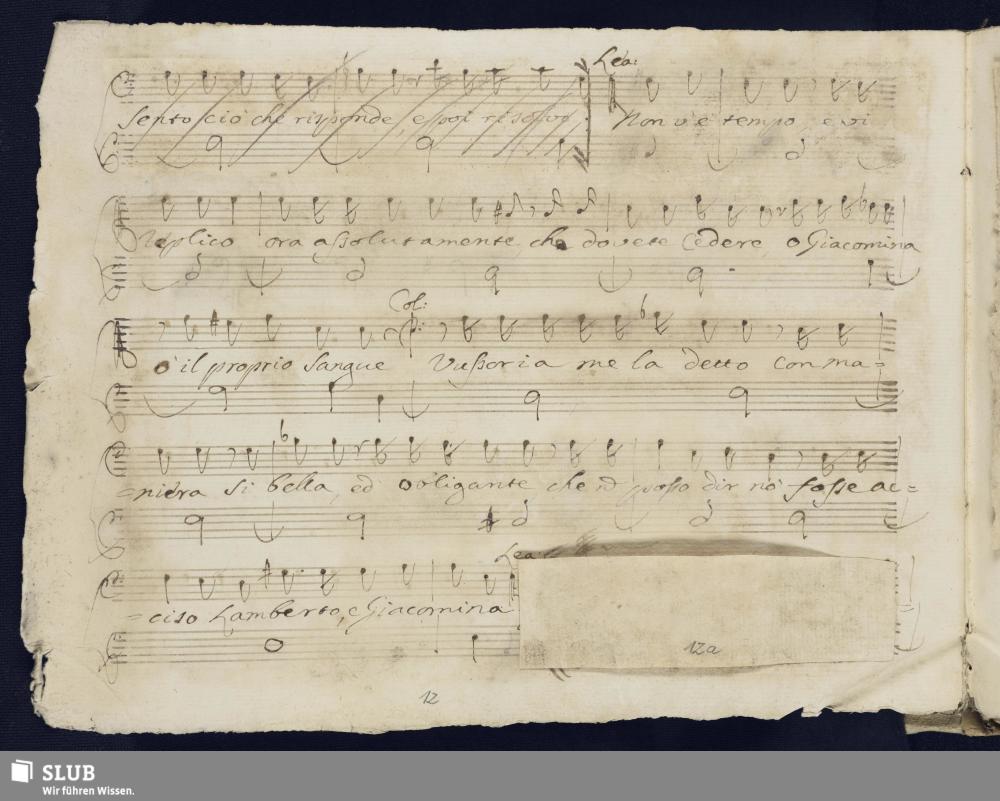 Lea:
Sento ciò che risponde, e poi risolvo Non v'è tempo, e vi
replico ora assolutamente, che dovete cedere, o Giacomina
Col:
o il proprio sangue Vussoria me la detto con ma=
=niera si bella, ed obligante, che nõ posso dir nò fosse ac=
Lea:
=ciso Lamberto, e Giacomina
12a
12
SLUB
Wir führen Wissen.